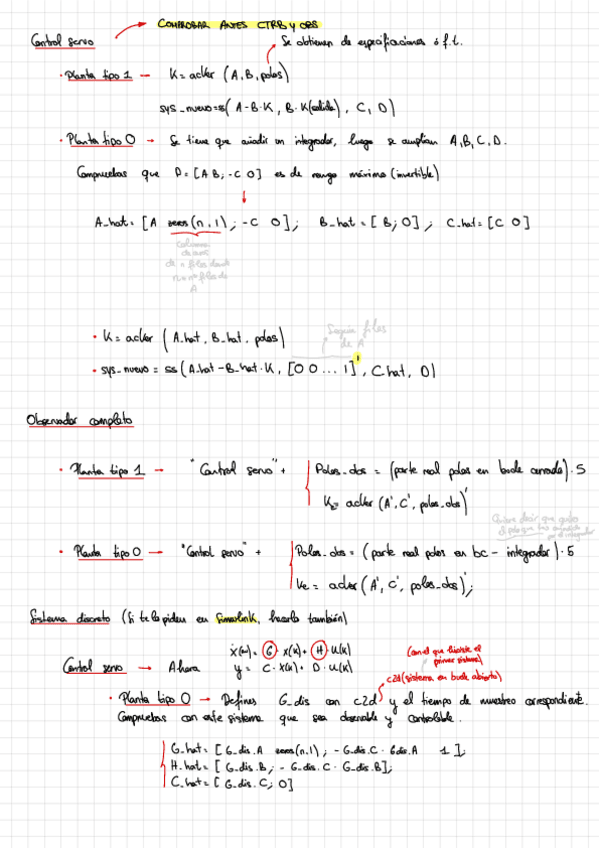 COMPROBAR ANTES CTRB y OBS
Control servo
Se obtienen de especificaciones ó f.t.
· Planta tipo 1 → K = acker (A, B, polos)
sys_nuevo = ss( A-B·K, B·K(salida), C, D)
· Planta tipo 0 → Se tiene que añadir un integrador, luego se amplían A, B, C, D.
Compruebas que P = [A B; -C 0] es de rango máximo (invertible)
A_hat = [A zeros(n,1); -C 0]; B_hat = [B; 0]; C_hat = [C 0]
Columna
de ceros
de n filas donde
n = nº filas de
A
Según filas
de A
· K = acker (A_hat, B_hat, polos)
· sys_nuevo = ss(A_hat-B_hat·K, [0 0 ... 1]', C_hat, 0)
Observador completo
· Planta tipo 1 → "Control servo" + Polos_obs = (parte real polos en bucle cerrado)·5
Ke = acker (A', C', polos_obs)'
Quiere decir que quites
el polo que has añadido
por el integrador
· Planta tipo 0 → "Control servo" + Polos_obs = (parte real polos en bc - integrador)·5
Ke = acker (A', C', polos_obs)';
Sistema discreto (Si te lo piden en Simulink, hacerlo también)
x(k) = G x(k) + H u(k)
Control servo → Ahora y = C·x(k) + D·u(k)
(con el que hiciste el
primer sistema)
c2d(sistema en bucle abierto)
· Planta tipo 0 → Defines G_dis con c2d y el tiempo de muestreo correspondiente.
Compruebas con este sistema que sea observable y controlable.
G_hat = [G_dis.A zeros(n,1); -G_dis.C·G_dis.A 1];
H_hat = [G_dis.B; -G_dis.C·G_dis.B];
C_hat = [G_dis.C; 0]